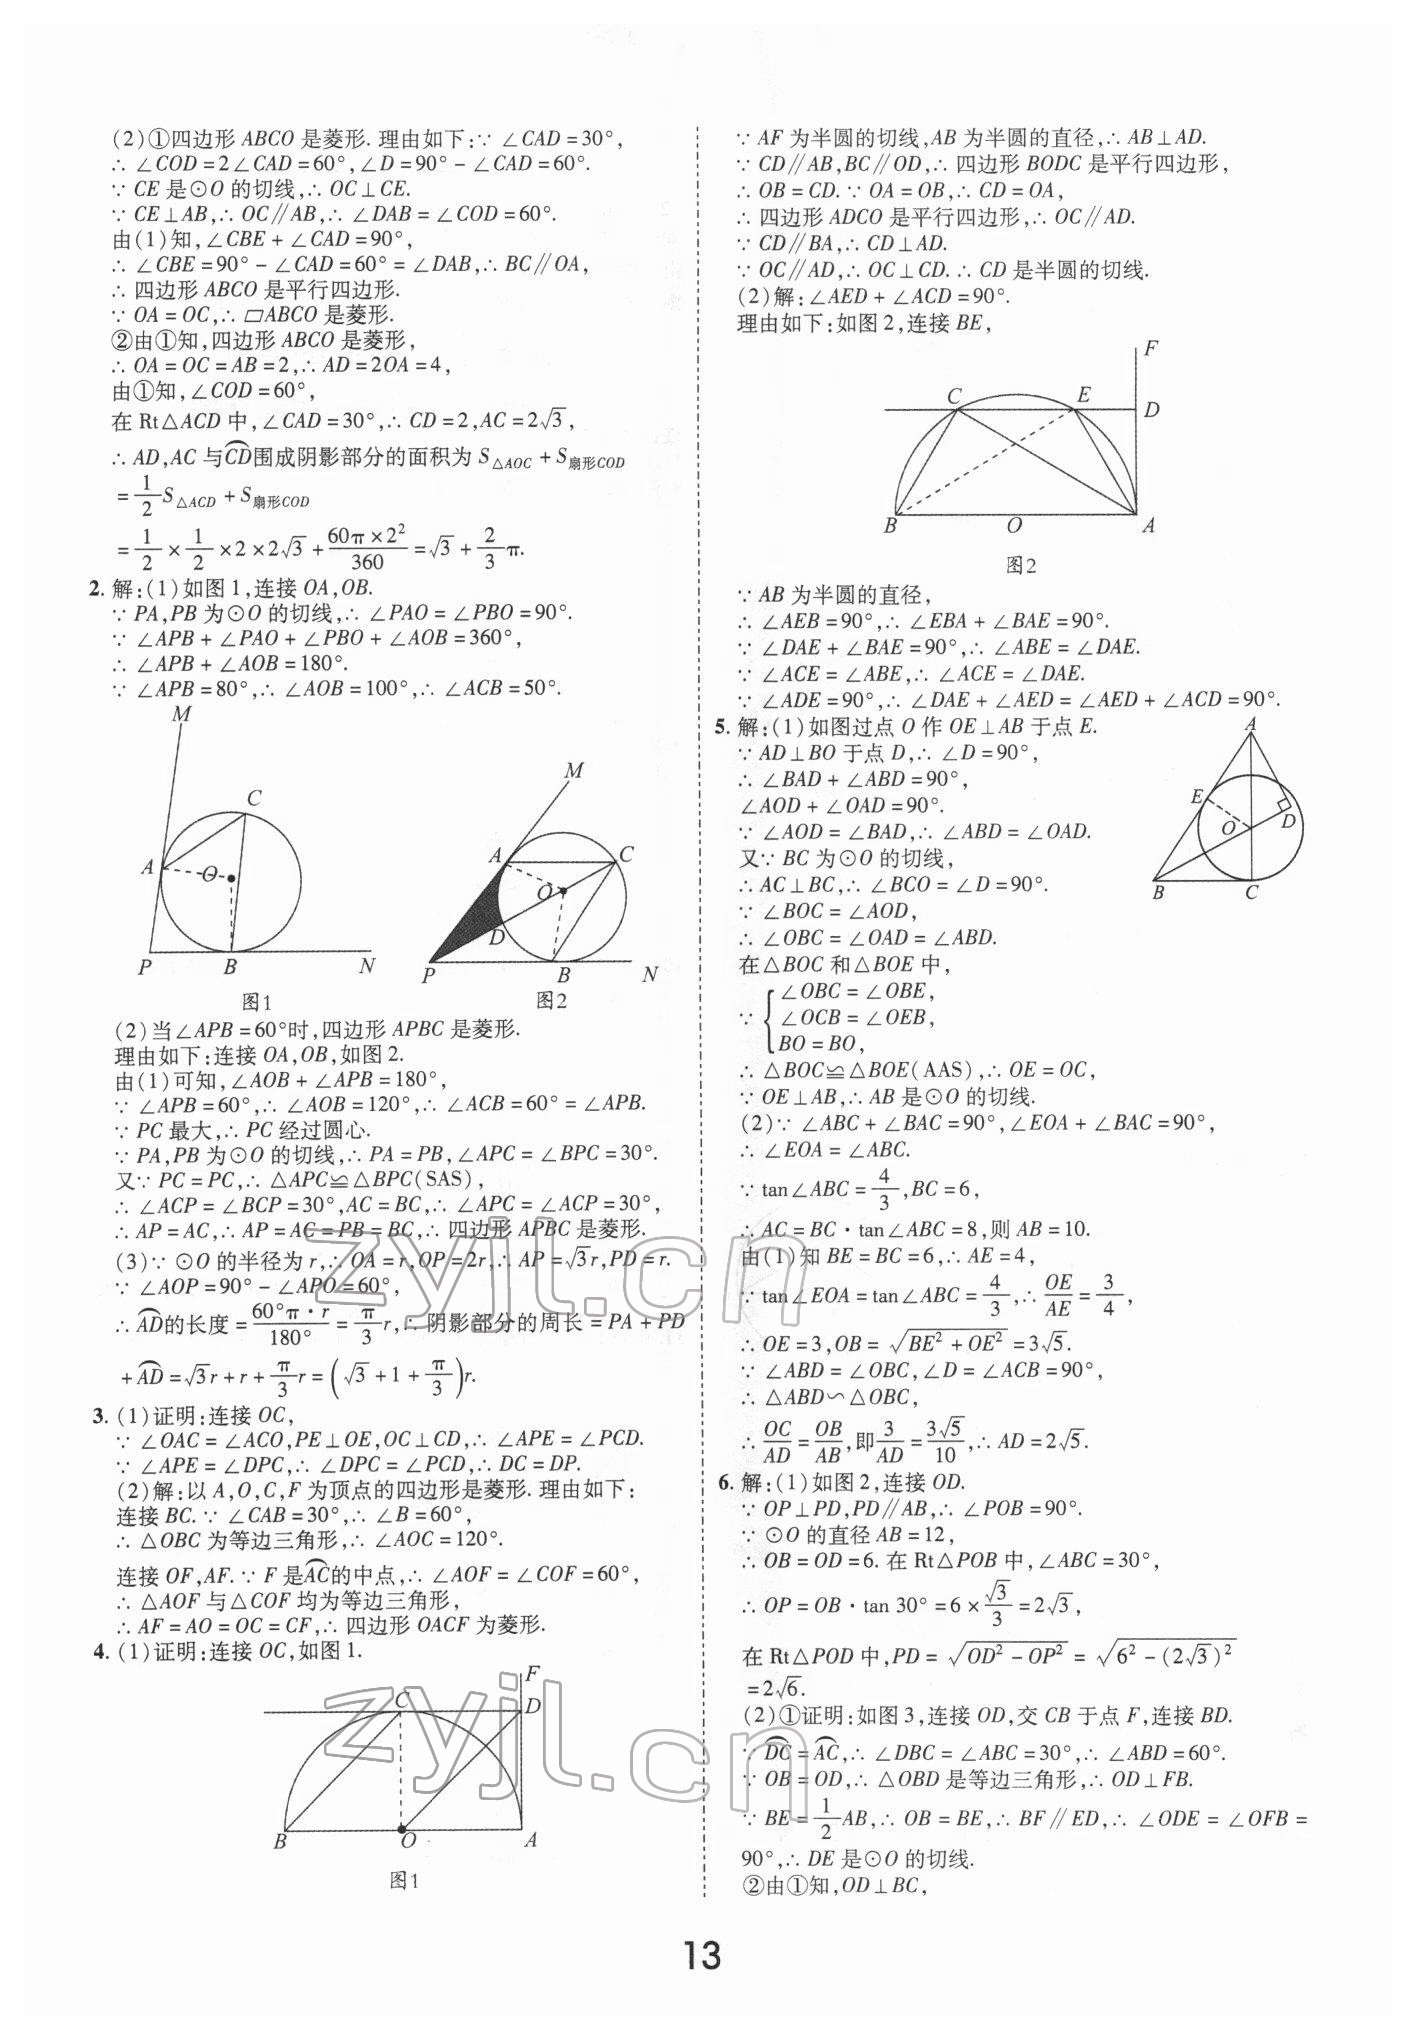 (2)①四边形 ABCO 是菱形. 理由如下:∵ ∠CAD=30°,
∴ ∠COD=2∠CAD=60°,∠D=90°-∠CAD=60°.
∵ CE 是⊙O 的切线,∴ OC⊥CE.
∵ CE⊥AB,∴ OC∥AB,∴ ∠DAB=∠COD=60°.
由(1)知,∠CBE+∠CAD=90°,
∴ ∠CBE=90°-∠CAD=60°=∠DAB,∴ BC∥OA,
∴ 四边形 ABCO 是平行四边形.
∵ OA=OC,∴ ▱ABCO 是菱形.
②由①知,四边形 ABCO 是菱形,
∴ OA=OC=AB=2,∴ AD=2OA=4,
由①知,∠COD=60°,
在 Rt△ACD 中,∠CAD=30°,∴ CD=2,AC=2√3,
∴ AD,AC 与⌒CD围成阴影部分的面积为 S△AOC+S扇形COD
=1/2 S△ACD+S扇形COD
=1/2×1/2×2×2√3+60π×2²/360=√3+2/3π.
2. 解:(1)如图 1,连接 OA,OB.
∵ PA,PB 为⊙O 的切线,∴ ∠PAO=∠PBO=90°.
∵ ∠APB+∠PAO+∠PBO+∠AOB=360°,
∴ ∠APB+∠AOB=180°.
∵ ∠APB=80°,∴ ∠AOB=100°,∴ ∠ACB=50°.
M
C
A
O
P
B
N
图1
M
A
C
O
D
P
B
N
图2
(2)当∠APB=60°时,四边形 APBC 是菱形.
理由如下:连接 OA,OB,如图 2.
由(1)可知,∠AOB+∠APB=180°,
∵ ∠APB=60°,∴ ∠AOB=120°,∴ ∠ACB=60°=∠APB.
∵ PC 最大,∴ PC 经过圆心.
∵ PA,PB 为⊙O 的切线,∴ PA=PB,∠APC=∠BPC=30°.
又∵ PC=PC,∴ △APC≌△BPC(SAS),
∴ ∠ACP=∠BCP=30°,AC=BC,∴ ∠APC=∠ACP=30°,
∴ AP=AC,∴ AP=AC=PB=BC,∴ 四边形 APBC 是菱形.
(3)∵ ⊙O 的半径为 r,∴ OA=r,OP=2r,∴ AP=√3r,PD=r.
∵ ∠AOP=90°-∠APO=60°,
∴ ⌒AD的长度=60°π·r/180°=π/3 r,∴ 阴影部分的周长=PA+PD
+⌒AD=√3r+r+π/3 r=(√3+1+π/3)r.
3. (1)证明:连接 OC,
∵ ∠OAC=∠ACO,PE⊥OE,OC⊥CD,∴ ∠APE=∠PCD.
∵ ∠APE=∠DPC,∴ ∠DPC=∠PCD,∴ DC=DP.
(2)解:以 A,O,C,F 为顶点的四边形是菱形. 理由如下:
连接 BC.∵ ∠CAB=30°,∴ ∠B=60°,
∴ △OBC 为等边三角形,∴ ∠AOC=120°.
连接 OF,AF.∵ F 是⌒AC的中点,∴ ∠AOF=∠COF=60°,
∴ △AOF 与△COF 均为等边三角形,
∴ AF=AO=OC=CF,∴ 四边形 OACF 为菱形.
4. (1)证明:连接 OC,如图 1.
F
C
D
B
O
A
图1
∵ AF 为半圆的切线,AB 为半圆的直径,∴ AB⊥AD.
∵ CD∥AB,BC∥OD,∴ 四边形 BODC 是平行四边形,
∴ OB=CD.∵ OA=OB,∴ CD=OA,
∴ 四边形 ADCO 是平行四边形,∴ OC∥AD.
∵ CD∥BA,∴ CD⊥AD.
∵ OC∥AD,∴ OC⊥CD.∴ CD 是半圆的切线.
(2)解:∠AED+∠ACD=90°.
理由如下:如图 2,连接 BE,
F
C
E
D
B
O
A
图2
∵ AB 为半圆的直径,
∴ ∠AEB=90°,∴ ∠EBA+∠BAE=90°.
∵ ∠DAE+∠BAE=90°,∴ ∠ABE=∠DAE.
∵ ∠ACE=∠ABE,∴ ∠ACE=∠DAE.
∵ ∠ADE=90°,∴ ∠DAE+∠AED=∠AED+∠ACD=90°.
5. 解:(1)如图过点 O 作 OE⊥AB 于点 E.
∵ AD⊥BO 于点 D,∴ ∠D=90°,
∴ ∠BAD+∠ABD=90°,
∠AOD+∠OAD=90°.
∵ ∠AOD=∠BAD,∴ ∠ABD=∠OAD.
又∵ BC 为⊙O 的切线,
∴ AC⊥BC,∴ ∠BCO=∠D=90°.
∵ ∠BOC=∠AOD,
∴ ∠OBC=∠OAD=∠ABD.
在△BOC 和△BOE 中,
A
E
O
D
B
C
∵ {∠OBC=∠OBE,
∠OCB=∠OEB,
BO=BO,
∴ △BOC≌△BOE(AAS),∴ OE=OC,
∵ OE⊥AB,∴ AB 是⊙O 的切线.
(2)∵ ∠ABC+∠BAC=90°,∠EOA+∠BAC=90°,
∴ ∠EOA=∠ABC.
∵ tan∠ABC=4/3,BC=6,
∴ AC=BC·tan∠ABC=8,则 AB=10.
由(1)知 BE=BC=6,∴ AE=4,
∵ tan∠EOA=tan∠ABC=4/3,∴ OE/AE=3/4,
∴ OE=3,OB=√(BE²+OE²)=3√5.
∵ ∠ABD=∠OBC,∠D=∠ACB=90°,
∴ △ABD∽△OBC,
∴ OC/AD=OB/AB,即3/AD=3√5/10,∴ AD=2√5.
6. 解:(1)如图 2,连接 OD.
∵ OP⊥PD,PD∥AB,∴ ∠POB=90°.
∵ ⊙O 的直径 AB=12,
∴ OB=OD=6. 在 Rt△POB 中,∠ABC=30°,
∴ OP=OB·tan 30°=6×√3/3=2√3,
在 Rt△POD 中,PD=√(OD²-OP²)=√(6²-(2√3)²)
=2√6.
(2)①证明:如图 3,连接 OD,交 CB 于点 F,连接 BD.
∵ ⌒DC=⌒AC,∴ ∠DBC=∠ABC=30°,∴ ∠ABD=60°.
∵ OB=OD,∴ △OBD 是等边三角形,∴ OD⊥FB.
∵ BE=1/2 AB,∴ OB=BE,∴ BF∥ED,∴ ∠ODE=∠OFB=
90°,∴ DE 是⊙O 的切线.
②由①知,OD⊥BC,
13
zyjl.cn
zyjl.cn